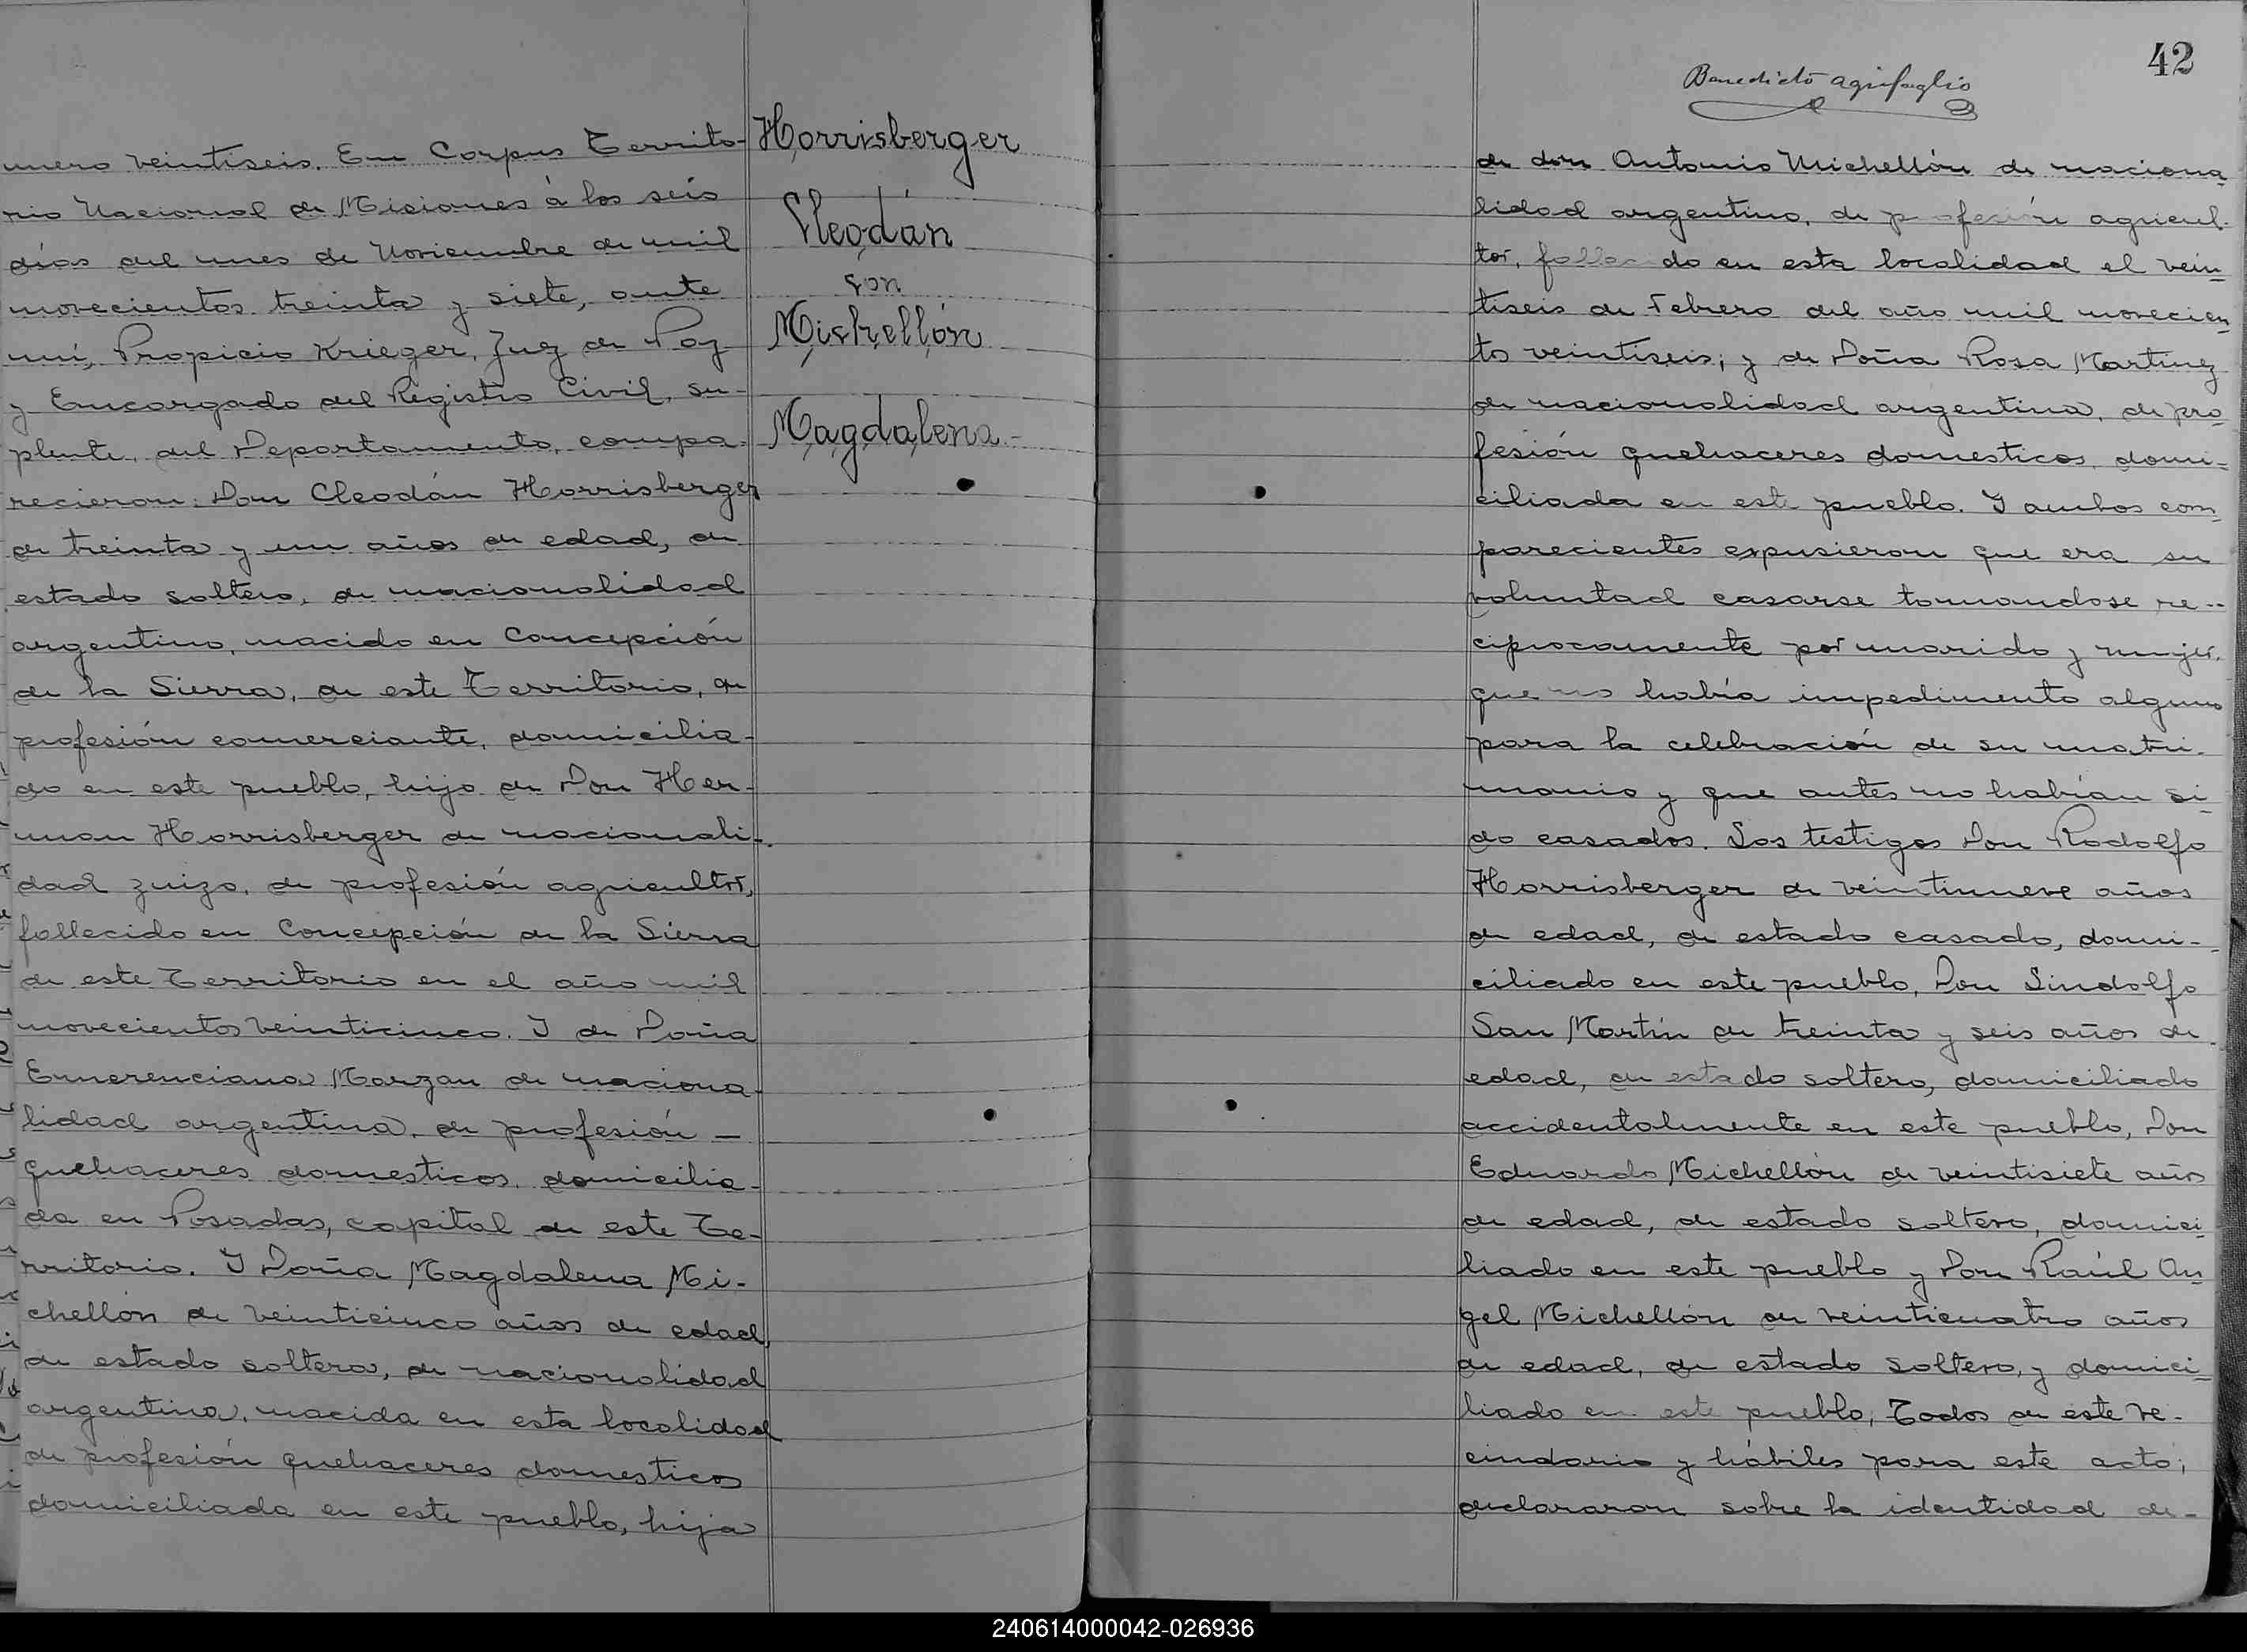 mero veintiseis. En Corpus Territo-
rio Nacional de Misiones á los seis
dias del mes de Noviembre de mil
novecientos treinta y siete, ante
mí, Propicio Krieger, Juez de Paz
y Encargado del Registro Civil, su-
plente, del Departamento, compa-
recieron: Don Cleodán Horrisberger
de treinta y un años de edad, de
estado soltero, de nacionalidad
argentino, nacido en Concepción
de la Sierra, de este Territorio, de
profesión comerciante, domicilia-
do en este pueblo, hijo de Don Her-
man Horrisberger de nacionali-
dad zuizo, de profesión agricultor,
fallecido en Concepción de la Sierra
de este Territorio en el año mil
novecientos veinticinco. I de Doña
Emerenciana Marzan de naciona-
lidad argentina, de profesión -
quehaceres domesticos, domicilia-
da en Posadas, capital de este Te-
rritorio. I Doña Magdalena Mi-
chellón de veinticinco años de edad,
de estado soltera, de nacionalidad
argentina, nacida en esta localidad
de profesión quehaceres domesticos
domiciliada en este pueblo, hija
Horrisberger
Cleodán
con
Mishellón
Magdalena-
42
Benedicto Agrifoglio
de don Antonio Michellón de naciona
lidad argentino, de profesión agricul-
tor, fallecido en esta localidad el vein
tiseis de Febrero del año mil novecien
to veintiseis; y de Doña Rosa Martinez
de nacionalidad argentina, de pro
fesión quehaceres domesticos, domi-
ciliada en este pueblo. I ambos com
parecientes expusieron que era su
voluntad casarse tomandose re--
ciprocamente por marido y mujer,
que no había impedimento alguno
para la celebración de su matri-
monio y que antes no habían si
do casados. Los testigos Don Rodolfo
Horrisberger de veintinueve años
de edad, de estado casado, domi-
ciliado en este pueblo, Don Lindolfo
San Martín de treinta y seis años de
edad, de estado soltero, domiciliado
accidentalmente en este pueblo, Don
Eduardo Michellón de veintisiete años
de edad, de estado soltero, domici
liado en este pueblo y Don Raúl An
gel Michellón de veinticuatro años
de edad, de estado soltero, y domici
liado en este pueblo; Todos de este ve-
cindario y hábiles para este acto;
declararon sobre la identidad de-
240614000042-026936